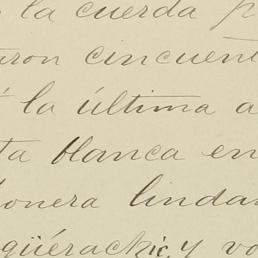 la cuerda p
aron cincuen
la última a
ta blanca en
onera linda
güérachic, y vo